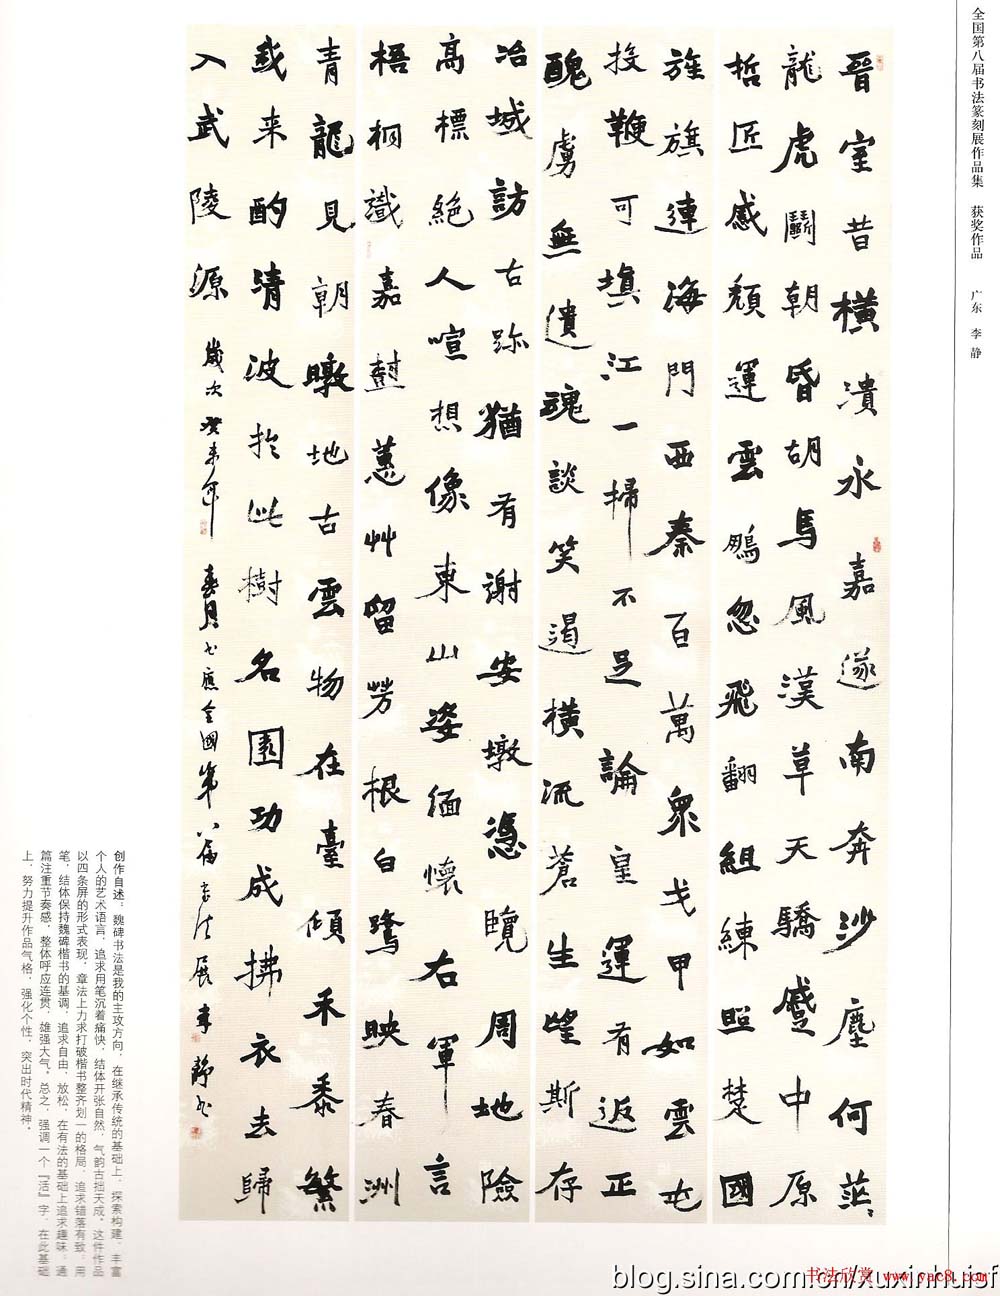 全国第八届书法篆刻展作品集　获奖作品　广东　李静
晉室昔橫潰永嘉遂南奔沙塵何茫〻
龍虎鬭朝昏胡馬風漢草天驕蹙中原
哲匠感頹運雲鵬忽飛翻組練照楚國
旌旗連海門西秦百萬衆戈甲如雲屯
投鞭可填江一掃不足論皇運有返正
醜虜無遺魂談笑遏橫流蒼生望斯存
冶城訪古跡猶有謝安墩憑覽周地險
高標絕人喧想像東山姿緬懷右軍言
梧桐識嘉尌蕙艸留芳根白鷺映春洲
青龍見朝暾地古雲物在臺傾禾黍繁
我来酌清波於此樹名園功成拂衣去歸
入武陵源　歲次癸未年春月書應全國第八屆書法展李靜書
创作自述：魏碑书法是我的主攻方向，在继承传统的基础上，探索构建、丰富
个人的艺术语言，追求用笔沉着痛快，结体开张自然，气韵古拙天成。这件作品
以四条屏的形式表现，章法上力求打破楷书整齐划一的格局，追求错落有致。用
笔、结体保持魏碑楷书的基调，追求自由、放松，在有法的基础上追求趣味。通
篇注重节奏感，整体呼应连贯，雄强大气。总之，强调一个『活』字，在此基础
上，努力提升作品气格，强化个性，突出时代精神。
blog.sina.com.cn/xuxinhuisf
书法欣赏 www.yac8.com